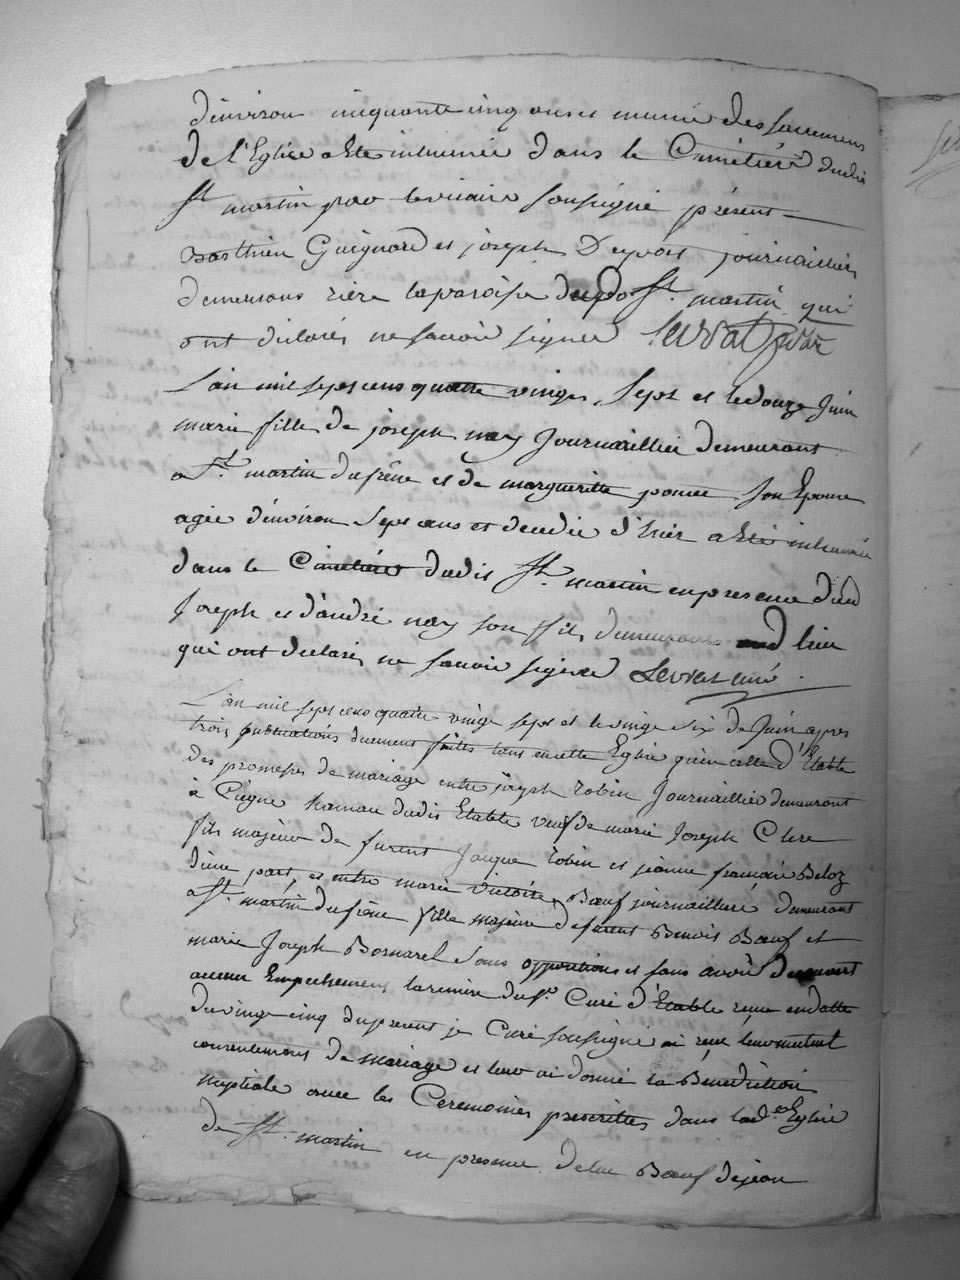 d'environ cinquante cinq ans et munie des Sacremens
de l'Eglise a été inhumée dans le Cimétière dudit
St martin par le vicaire soussigné présent
Barthien Guignard et joseph journaillier
demeurans rière la paroisse dudo St. martin qui
ont déclarés ne savoir signer Levrat
L'an mil sept cens quatre vingt Sept et le douze Juin
marie fille de joseph nay Journaillier demeurant
a St. martin du frêne et de margueritte ponce Son Epouse
agée d'environ Sept ans et décédée d'hier a été inhumée
dans le Cimétière dudit St. martin en présence dud
Joseph et d'andré nay son fils demeurans aud lieu
qui ont déclarés ne savoir signer Levrat curé.
L'an mil sept cens quatre vingt sept et le vingt six de Juin après
trois publications duement faites tans en cette Eglise qu'en celle d'Etable
des promesses de mariage entre joseph robin Journaillier demeurant
à Ciegne hameau dudit Etable veuf de marie Joseph Clere
fils majeur de furent Jacque robin et jeanne françoise Beloz
d'une part, et entre marie victoire Bœuf journaillière demeurant
a St. martin du frêne fille majeure de furent Benoit Bœuf et
marie Joseph Bornarel Sans oppositions et sans avoir découvert
aucun Empechement la remise du sr Curé d'Etable reçue en datte
du vingt cinq du présent je Curé soussigné ai reçu leur mutuel
consentement de mariage et leur ai donné la Bénédiction
nuptiale avec les Ceremonies prescrittes dans lad.e Eglise
de St. martin en présence de luc Bœuf de jean